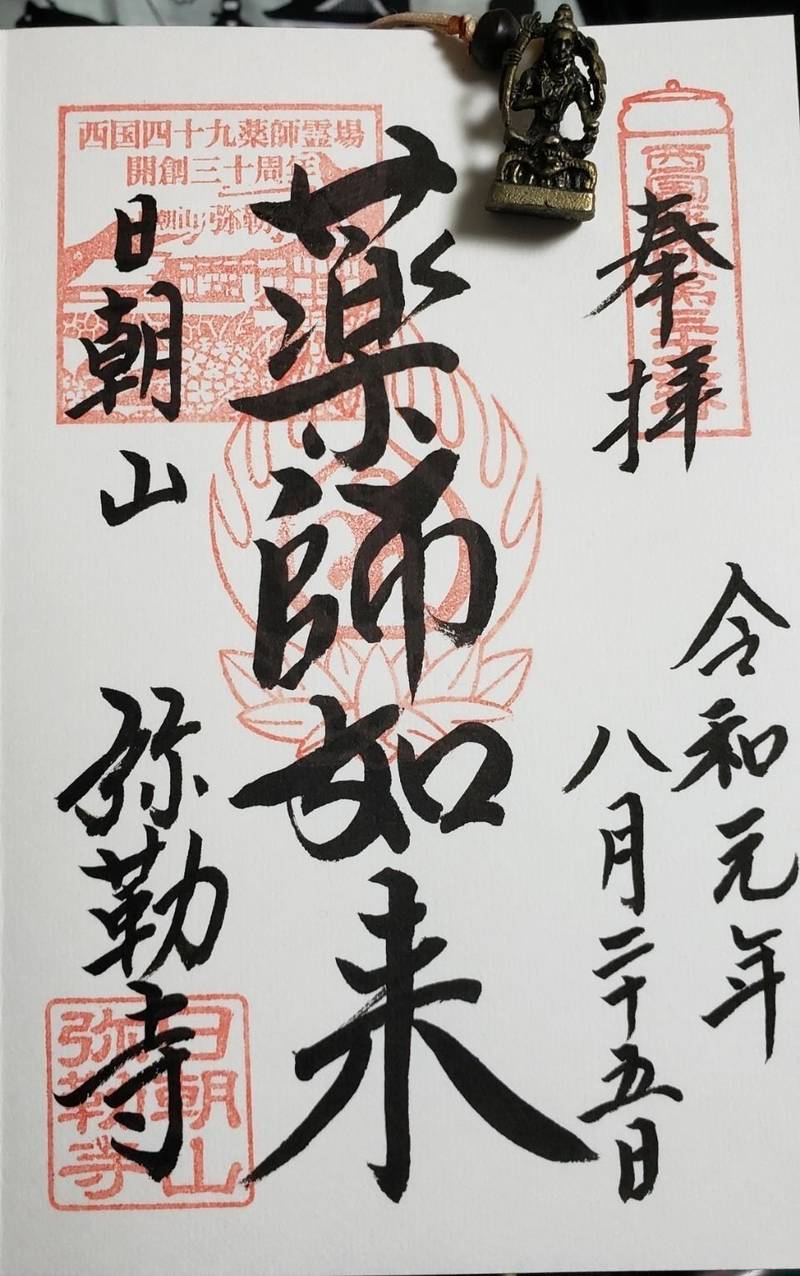 奉拝
令和元年
八月二十五日
薬師如来
日朝山
弥勒寺
西国四十九薬師霊場
開創三十周年
朝山 弥勒
日朝山
弥勒寺